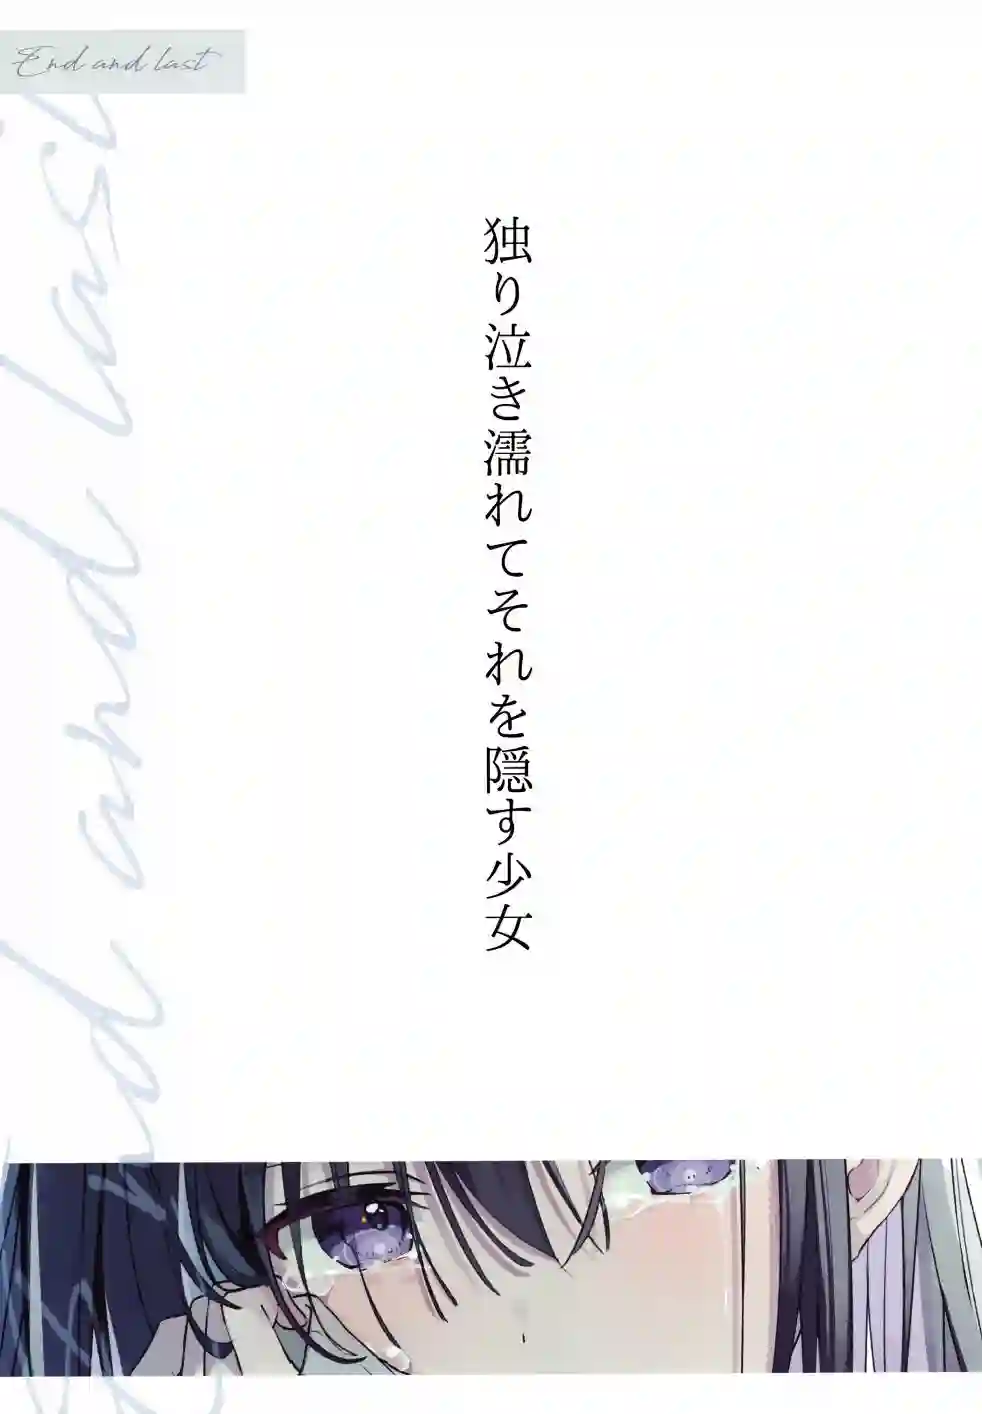 End and last
独り泣き濡れてそれを隠す少女
End and last